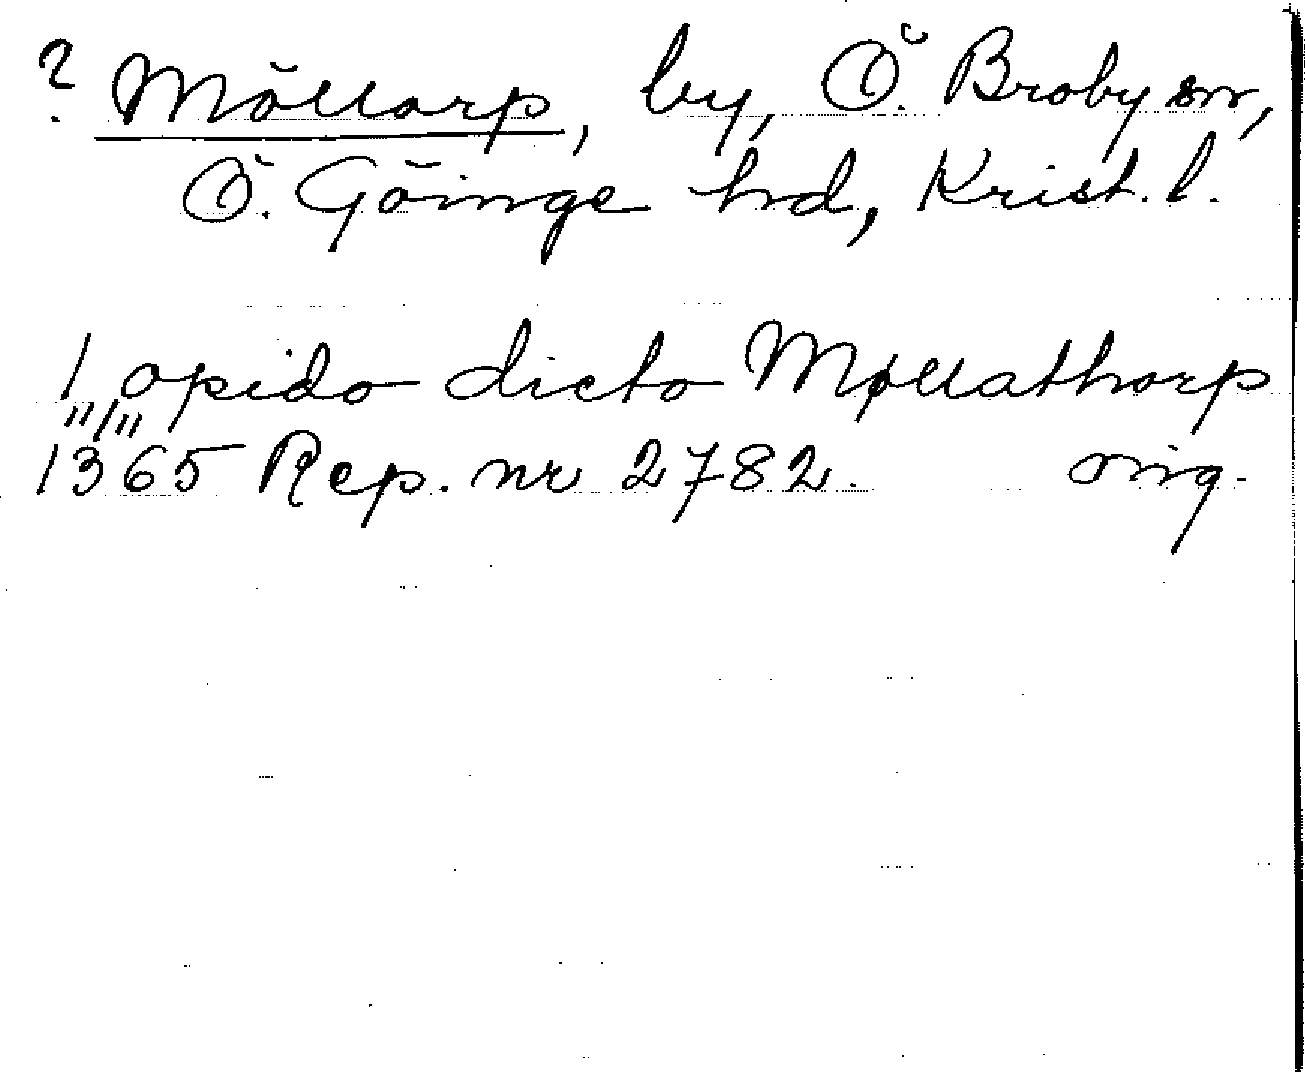 ? Möllarp, by, Ö. Broby sn,
Ö. Göinge hd, Krist. l.
1 opido dicto Møllathorp
"/"
1365 Rep. nr 2782. orig.